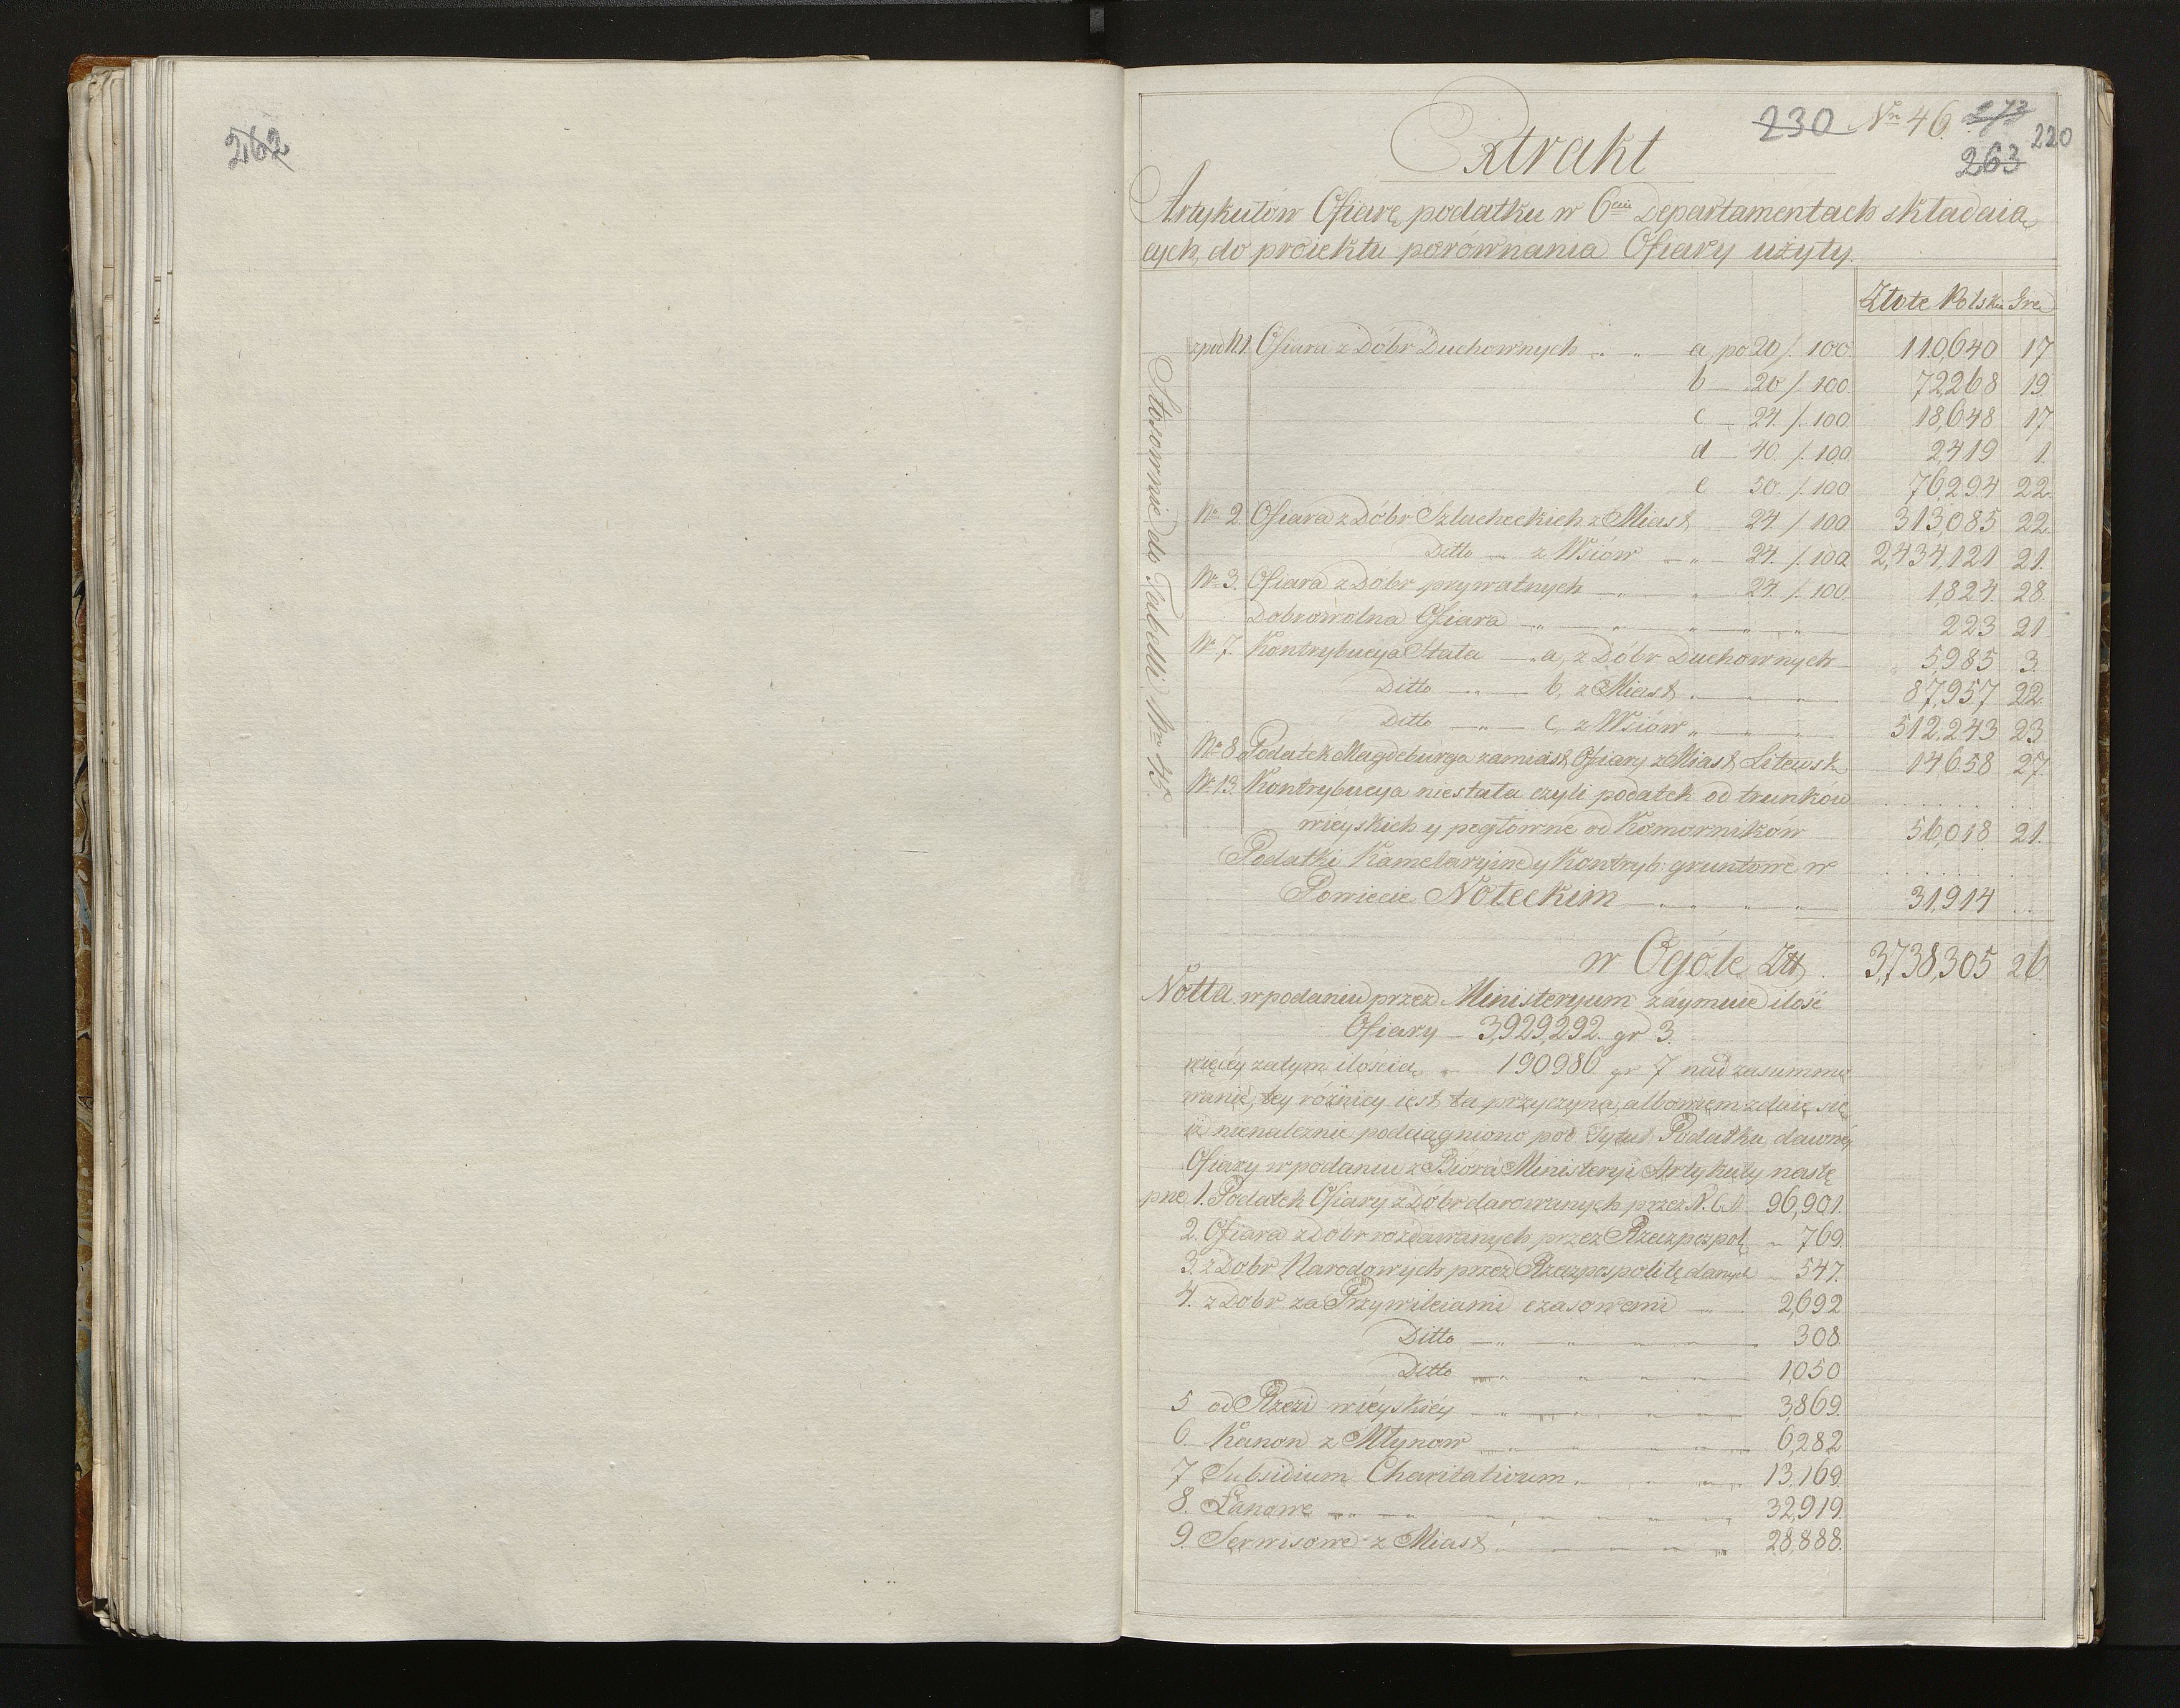 262
230 Nro 46. 273
263 220
Extrakt
Artykułów Ofiarę podatku w 6ciu Departamentach składaią
cych, do proiektu porównania Ofiary użyty.
Złote Polskie Gro
Stosownie do Tabelli Nro 45.
spod N1. Ofiara z Dóbr Duchownych „ „ — a, po 20 /. 100. 110,640 17
b — 20 /. 100. 72,268 19
c — 24. /. 100 18,648 17
d — 40. /. 100 2,419 1.
e 50. /. 100 76,294 22.
No 2. Ofiara z Dóbr Szlacheckich z Miast — 24. / 100 313,085 22
Ditto — z Wsiów — „ — 24. /. 100 2,434,121 21.
No 3. Ofiara z Dóbr prywatnych — „ — „ 24. /. 100. 1,824. 28
Dobrowolna Ofiara — „ — „ — „ — „ — 223 21
No 7. Kontrybucya Stała — „ a, z Dóbr Duchownych — 5,985 3.
Ditto — „ — b, z Miast „ — „ — „ 87,957 22
Ditto — „ — c, z Wsiów „ — „ — „ 512,243 23
No 8 Podatek Magdeburya zamiast Ofiary z Miast Litewsk. 14,658 27.
No 13. Kontrybucya niestała czyli podatek od trunków
wieyskich y pogłowne od Komorników 56,018 21.
Podatki Kamelaryine y Kontryb: gruntowe w
Powiecie Noteckim — „ — „ — „ — „ 31,914 ..
w Ogóle Złł. 3,738,305 26.
Notta. w podaniu przez Ministeryum zaymuie ilość
Ofiary — 3,929,292. gr 3.
więcéy zatym ilością „ 190986 gr 7 nad zasummo
wanie, tey różnicy iest ta przyczyna, albowiem zdaie się
iż nienależnie podciągniono pod Tytuł Podatku dawnéy
Ofiary w podaniu z Bióra Ministeryi Artykuły nastę
pne 1. Podatek Ofiary z Dóbr darowanych przez N. C. 96,901.
2. Ofiara z Dóbr rozdawanych przez Rzeczpospol. „ 769.
3. z Dobr Narodowych przez Rzeczpospolitę danych „ 547.
4. z Dobr za Przywileiami czasowemi — „ 2,692
Ditto — „ — „ — „ — „ — 308.
Ditto — „ — „ — „ — „ — 1,050
5 od Rzezi wieyskiéy — „ — „ — „ — 3,869.
6. Kanon z Młynow — „ — „ — „ — 6,282
7 Subsidium Charitativum „ — „ — „ 13,169.
8. Łanowe „ — „ — „ — „ — „ 32,919.
9. Serwisowe z Miast „ — „ — „ — „ 28,888.